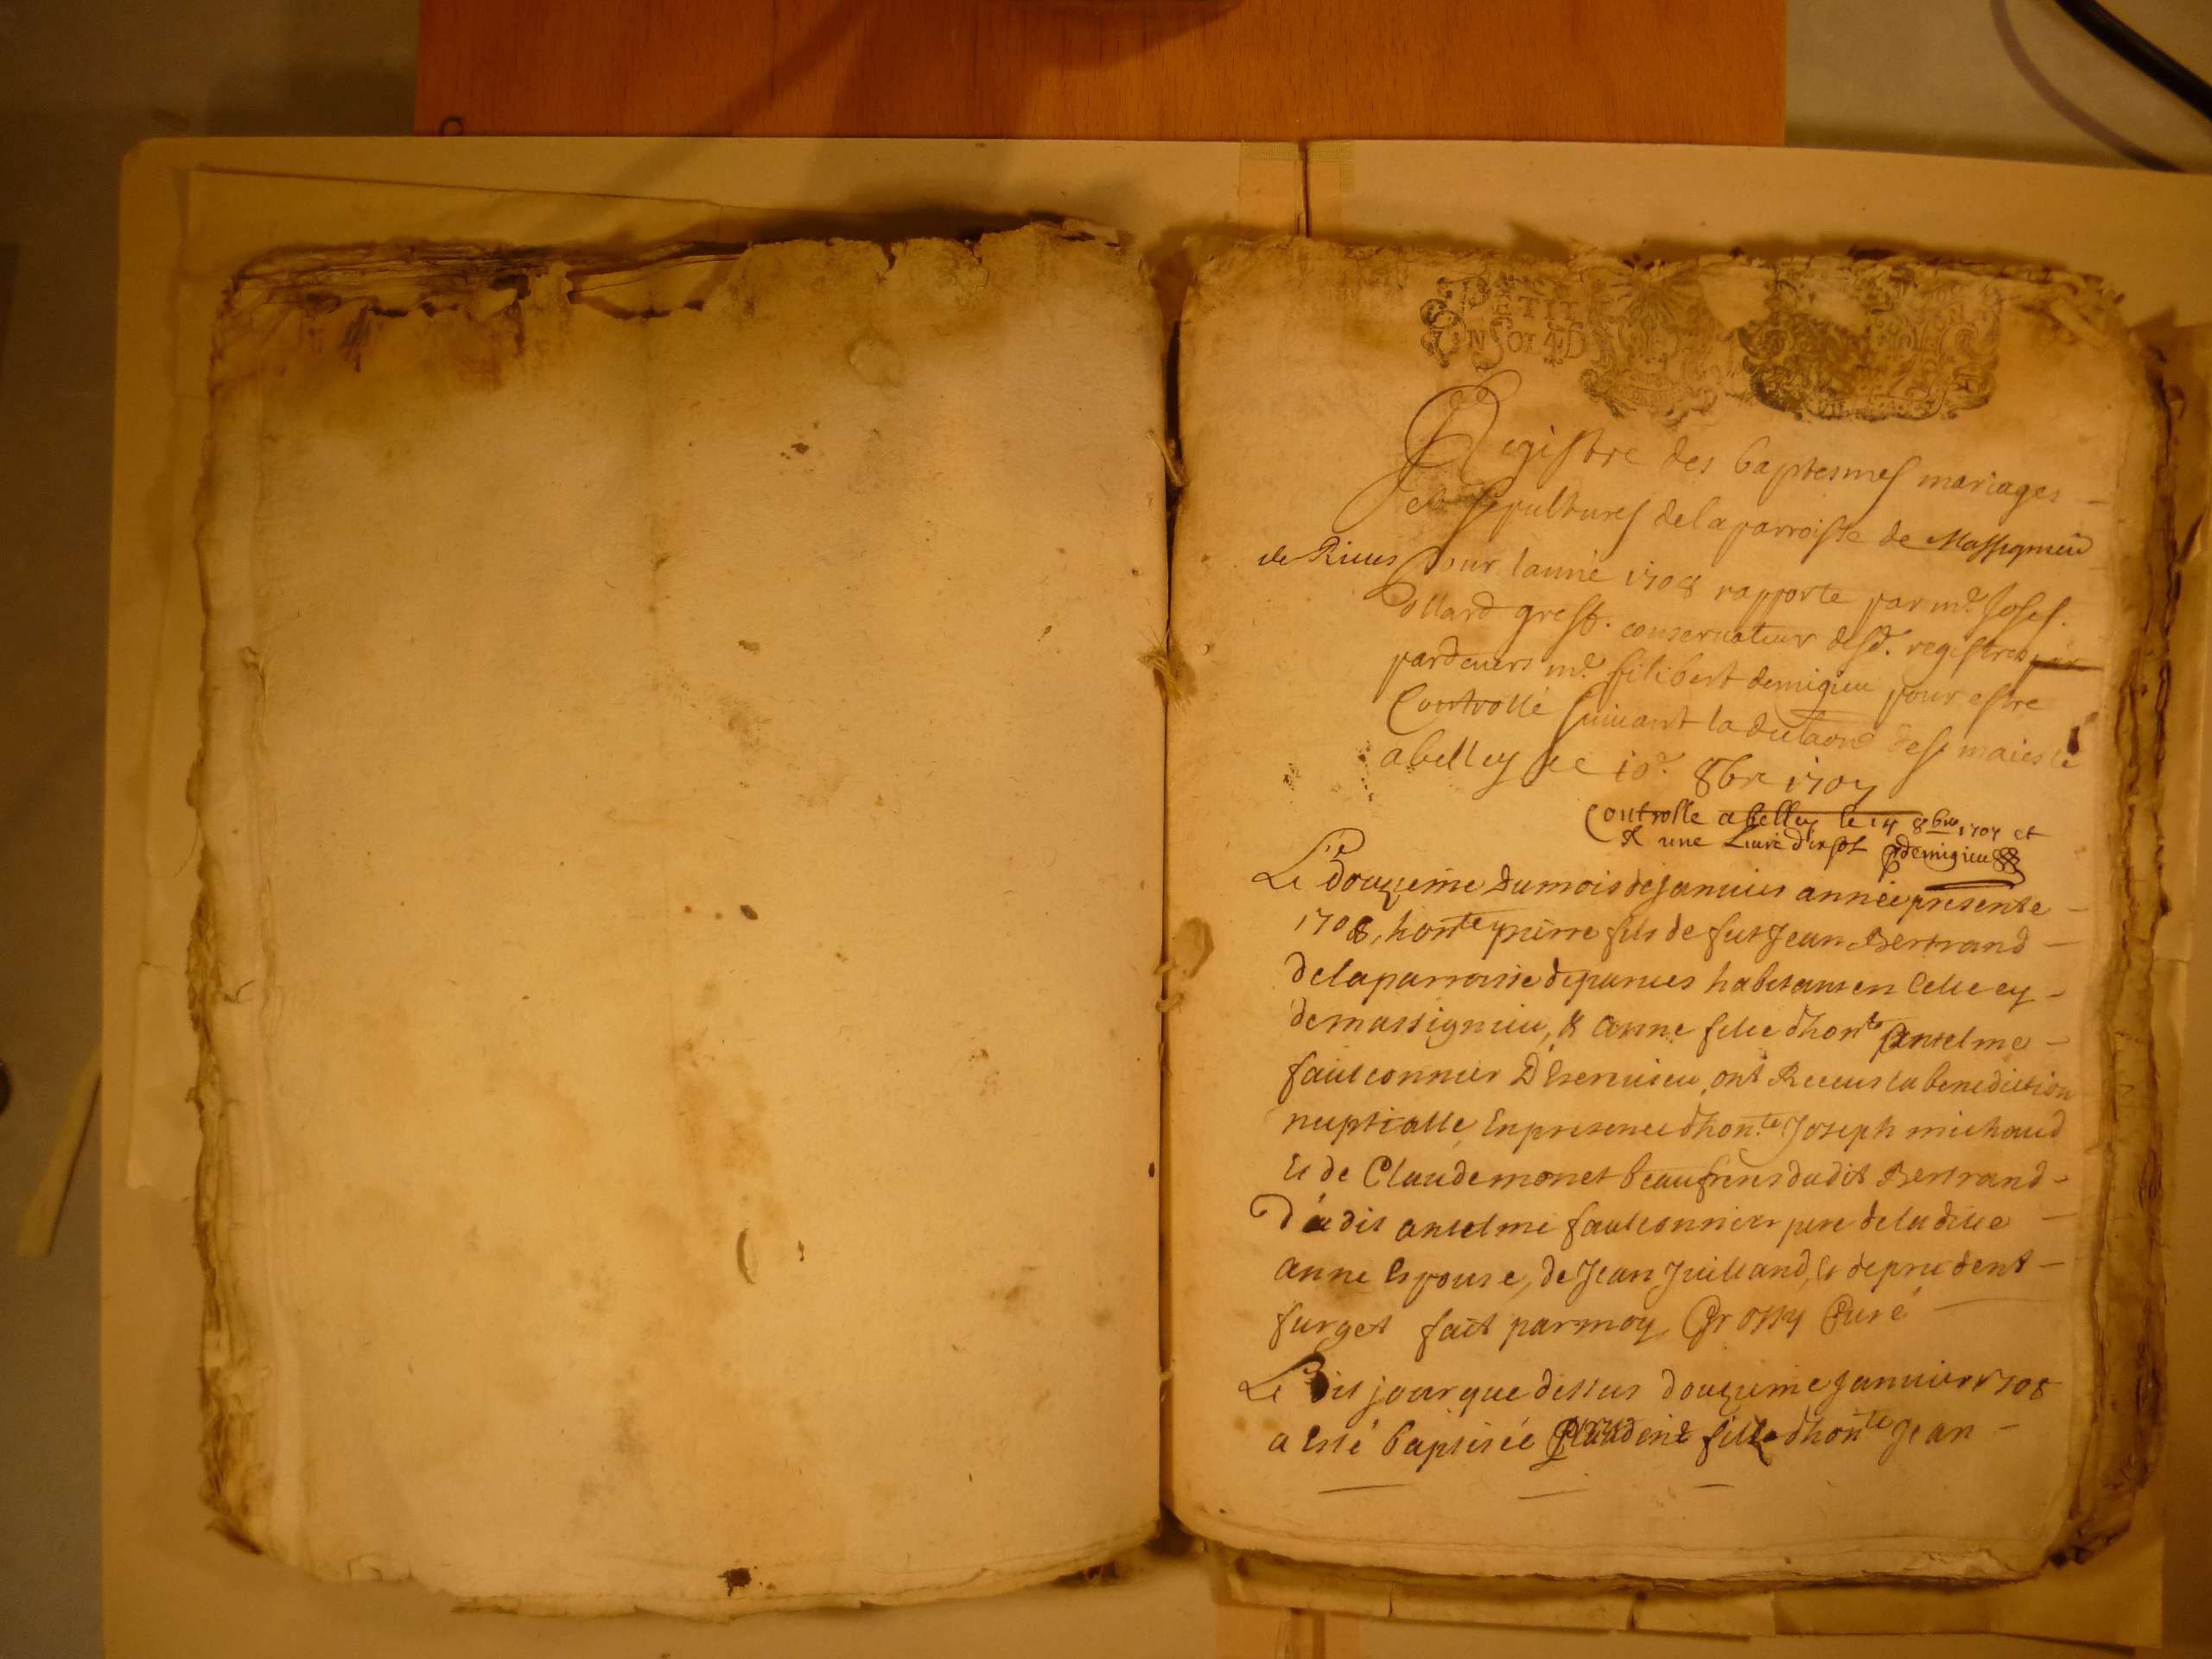 PETIT
UN SOL 4 D
Registre des baptesmes mariages
et sepultures de la parroisse de Massignieu
de Riues pour lanné 1708 rapporte par mr. Josef.
Collard greff. conseruateur desd. registres par
pardeuers mr. filibert demigieu pour estre
Controllé suiuant la declaraon de sa maiesté
a belley ce 10e. 8bre 1707
Controlle a belley le 14 8bre 1707 et
R une Liure dix sols pdemigieu
Le douzieme du mois de Januier année presente
1708, honte pierre fils de fut Jean Bertrand
de la parroisse de parues habitant en Celle cy
de massignieu, & Anne fille dhonte Antelme
faulconnier D'hernieu, ont Receus la benediction
nuptialle, En presence dhonte Joseph michaud
Et de Claude monet beaufrens dudit Bertrand
Dudit antelme faulconnier pere de ladite
anne Espouse, de Jean Juilland, & de prudent
furget fait par moy Grossy Curé
Le dit jour que dessus douzieme Januier 1708
a Esté baptisée Claudine fille dhonte Jean